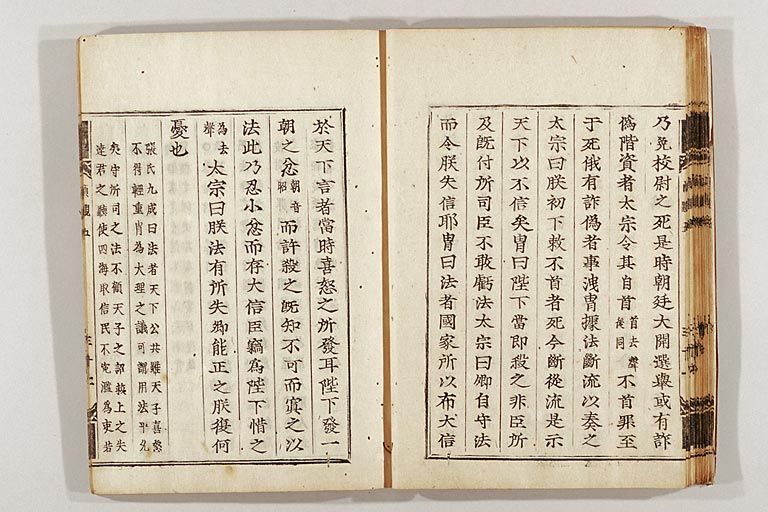 乃免校尉之死是時朝廷大開選擧或有詐
偽階資者太宗令其自首首去聲後同不首罪至
于死俄有詐偽者事洩胄據法斷流以奏之
太宗曰朕初下敕不首者死今斷從流是示
天下以不信矣胄曰陛下當即殺之非臣所
及旣付所司臣不敢虧法太宗曰卿自守法
而令朕失信耶胄曰法者國家所以布大信
於天下言者當時喜怒之所發耳陛下發一
朝之忿朝音昭而許殺之旣知不可而寘之以
法此乃忍小忿而存大信臣竊為陛下惜之
為去聲太宗曰朕法有所失卿能正之朕復何
憂也
張氏九成曰法者天下公共雖天子喜怒
不得輕重胄為大理之議可謂用法平允
矣守所司之法不顧天子之詔執上之失
達君之聽使四海取信民不寃濫為吏若
貞觀五